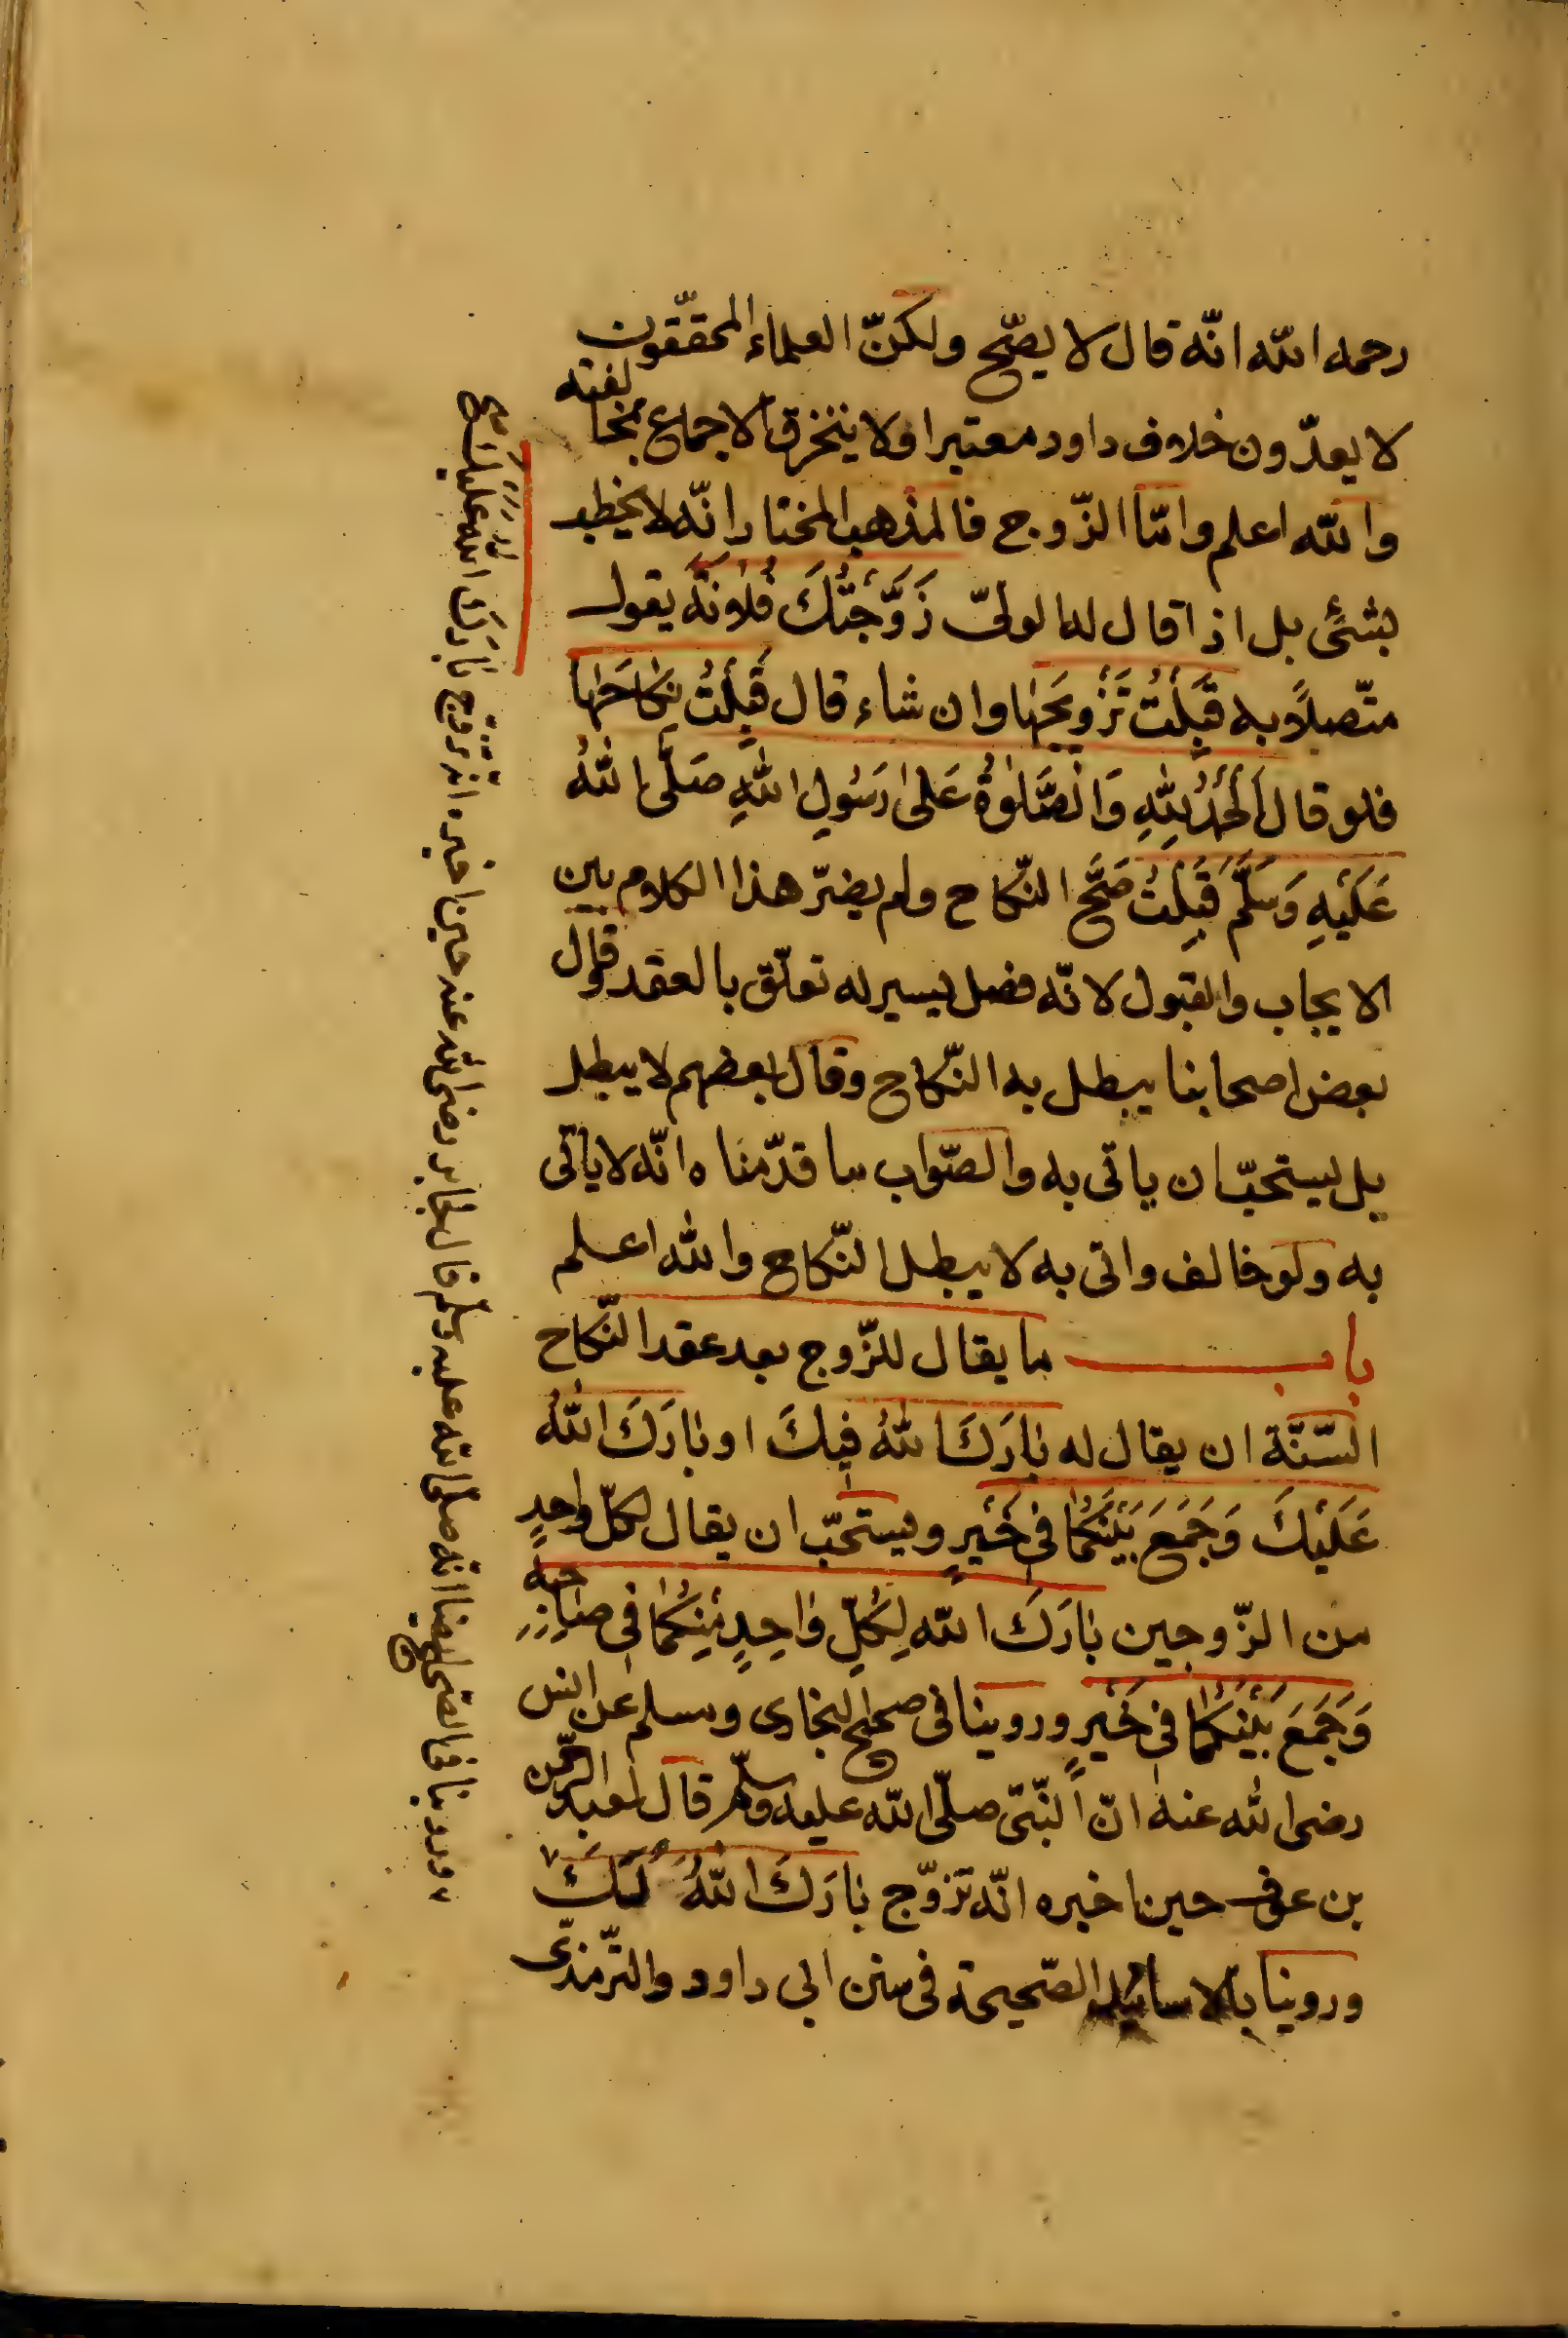 رحمه الله انّه قال لا يصّح ولكنّ العلماء المحقّقون
لا يعدّون خلاف داود معتبرا ولا ينخرق الاجماع بمخالفته
والله اعلم وامّا الزّوج فالمذهب المختار انّه لا يخطب
بشئ بل اذا قال له الولىّ زَوَّجْتُكَ فُلانَة يقول
متّصلاً به قَبِلْتُ تَزْوِيجَهٰا وان شاء قال قَبِلْتُ نِكاحَهٰا
فلو قال اَلْحَمْدُ لِلّٰهِ وَالصَّلوٰةُ عَلىٰ رَسُولِ اللّٰهِ صَلَّى اللّٰهُ
عَلَيْهِ وَسَلَّمَ قَبِلْتُ صَحَّ النّكاح ولم يضرّ هذا الكلام بين
الايجاب والقبول لانّه فصل يسير له تعلّق بالعقد وقال
بعض اصحابنا يبطل به النّكاح وقال بعضهم لا يبطل
بل يستحبّ ان ياتى به والصّواب ما قدّمناه انّه لا ياتى
به ولو خالف واتى به لا يبطل النّكاح والله اعلم
باب ما يقال للزّوج بعد عقد النّكاح
السّنّة ان يقال له بٰارَكَ اللّٰهُ فِيكَ او بٰارَكَ اللّٰهُ
عَلَيْكَ وَجَمَعَ بَيْنَكُمٰا فِى خَيْرٍ ويستحبّ ان يقال لكلّ واحدٍ
من الزّوجين بٰارَكَ الله لِكُلِّ وٰاحِدٍ مِنْكُمٰا فِى صٰاحِبِهِ
وَجَمَعَ بَيْنَكُمٰا فِى خَيْرٍ وروينا فى صحيح البخارى ومسلم عن انس
رضى الله عنه انّ النّبىّ صلّى الله عليه وسلّم قال لعبد الرّحمن
بن عوف حين اخبره انّه تزوّج بٰارَكَ اللّٰهُ لَكَ
وروينا بالاسانيد الصّحيحة فى سنن ابى داود والتّرمذىّ
وروينا فى الصّحيح ايضا انّه صلّى الله عليه وسلّم قال لجابر رضى الله عنه حين اخبره انّه تزوّج بٰارَكَ اللّٰهُ عَلَيْكَ